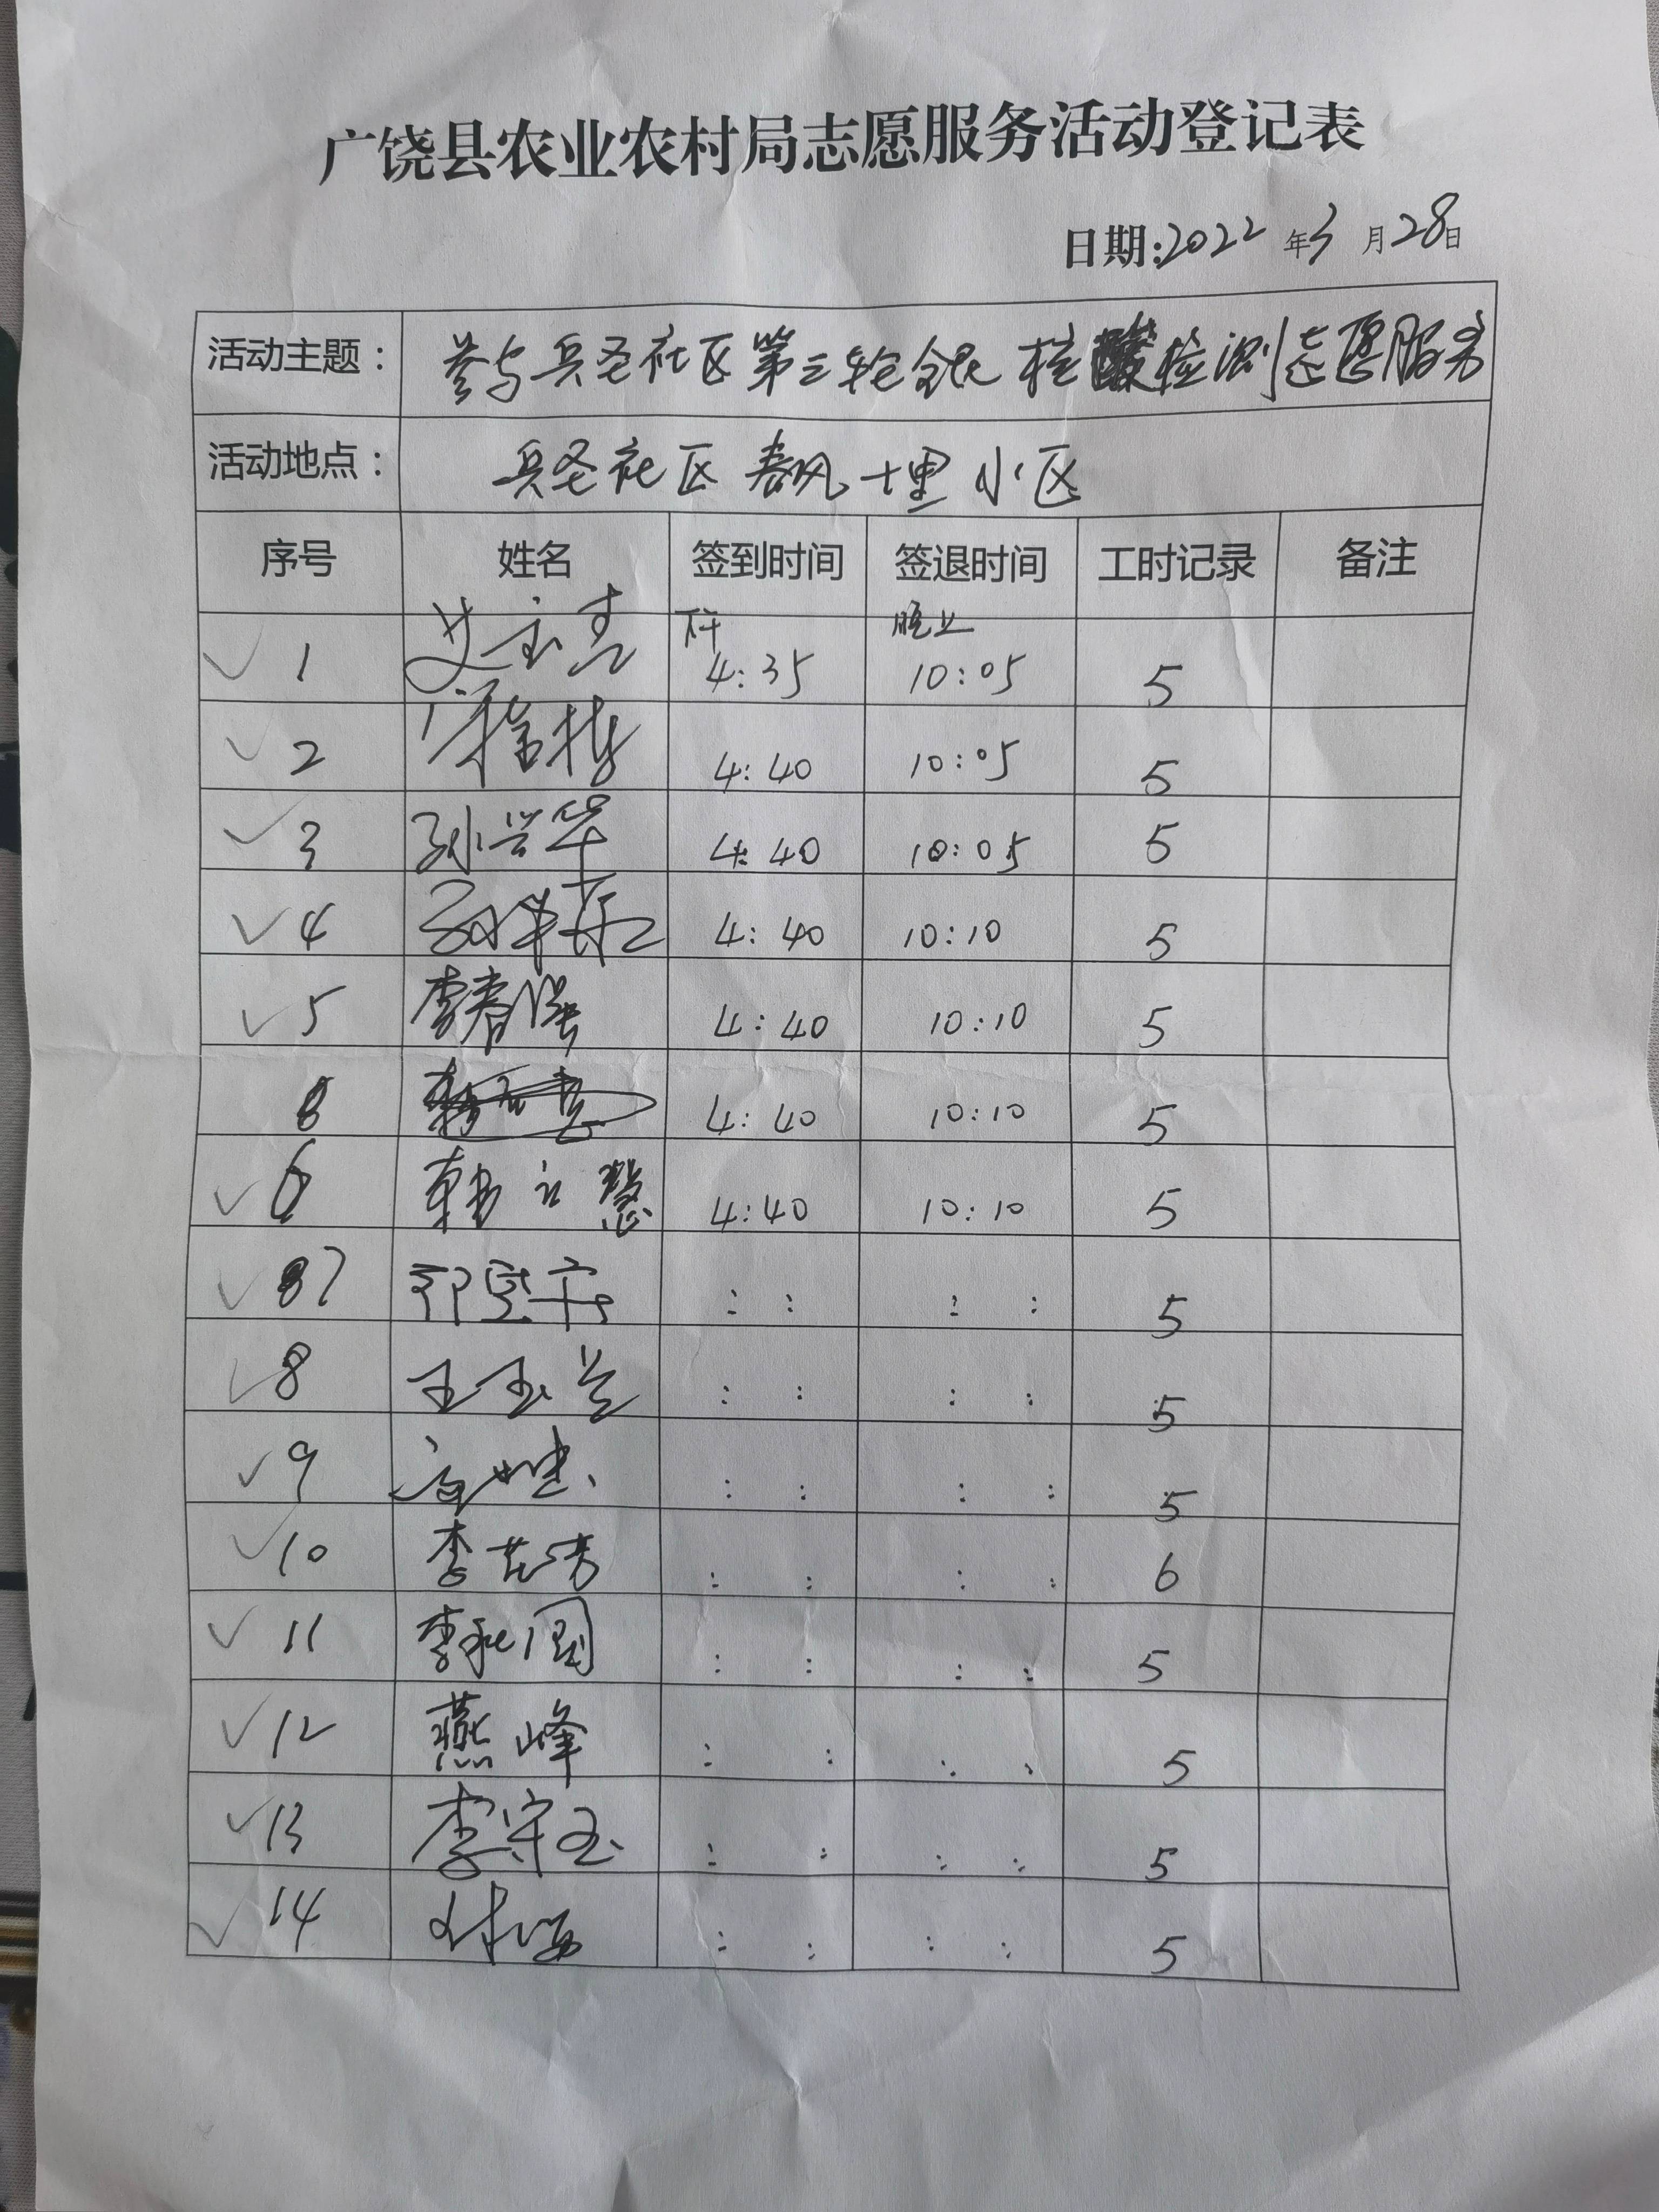 广饶县农业农村局志愿服务活动登记表
日期:2022年3月28日
活动主题: 参与兵圣社区第三轮全民核酸检测志愿服务
活动地点: 兵圣社区春风十里小区
序号 姓名 签到时间 签退时间 工时记录 备注
下午 晚上
1 4:35 10:05 5
2 4:40 10:05 5
3 孙兴华 4:40 10:05 5
4 4:40 10:10 5
5 李春 4:40 10:10 5
4:40 10:10 5
6 韩立慧 4:40 10:10 5
7 : : : : 5
8 王玉兰 : : : : 5
9 : : : : 5
10 李 : : : : 6
11 李和国 : : : : 5
12 燕峰 : : : : 5
13 李守玉 : : : : 5
14 : : : : 5